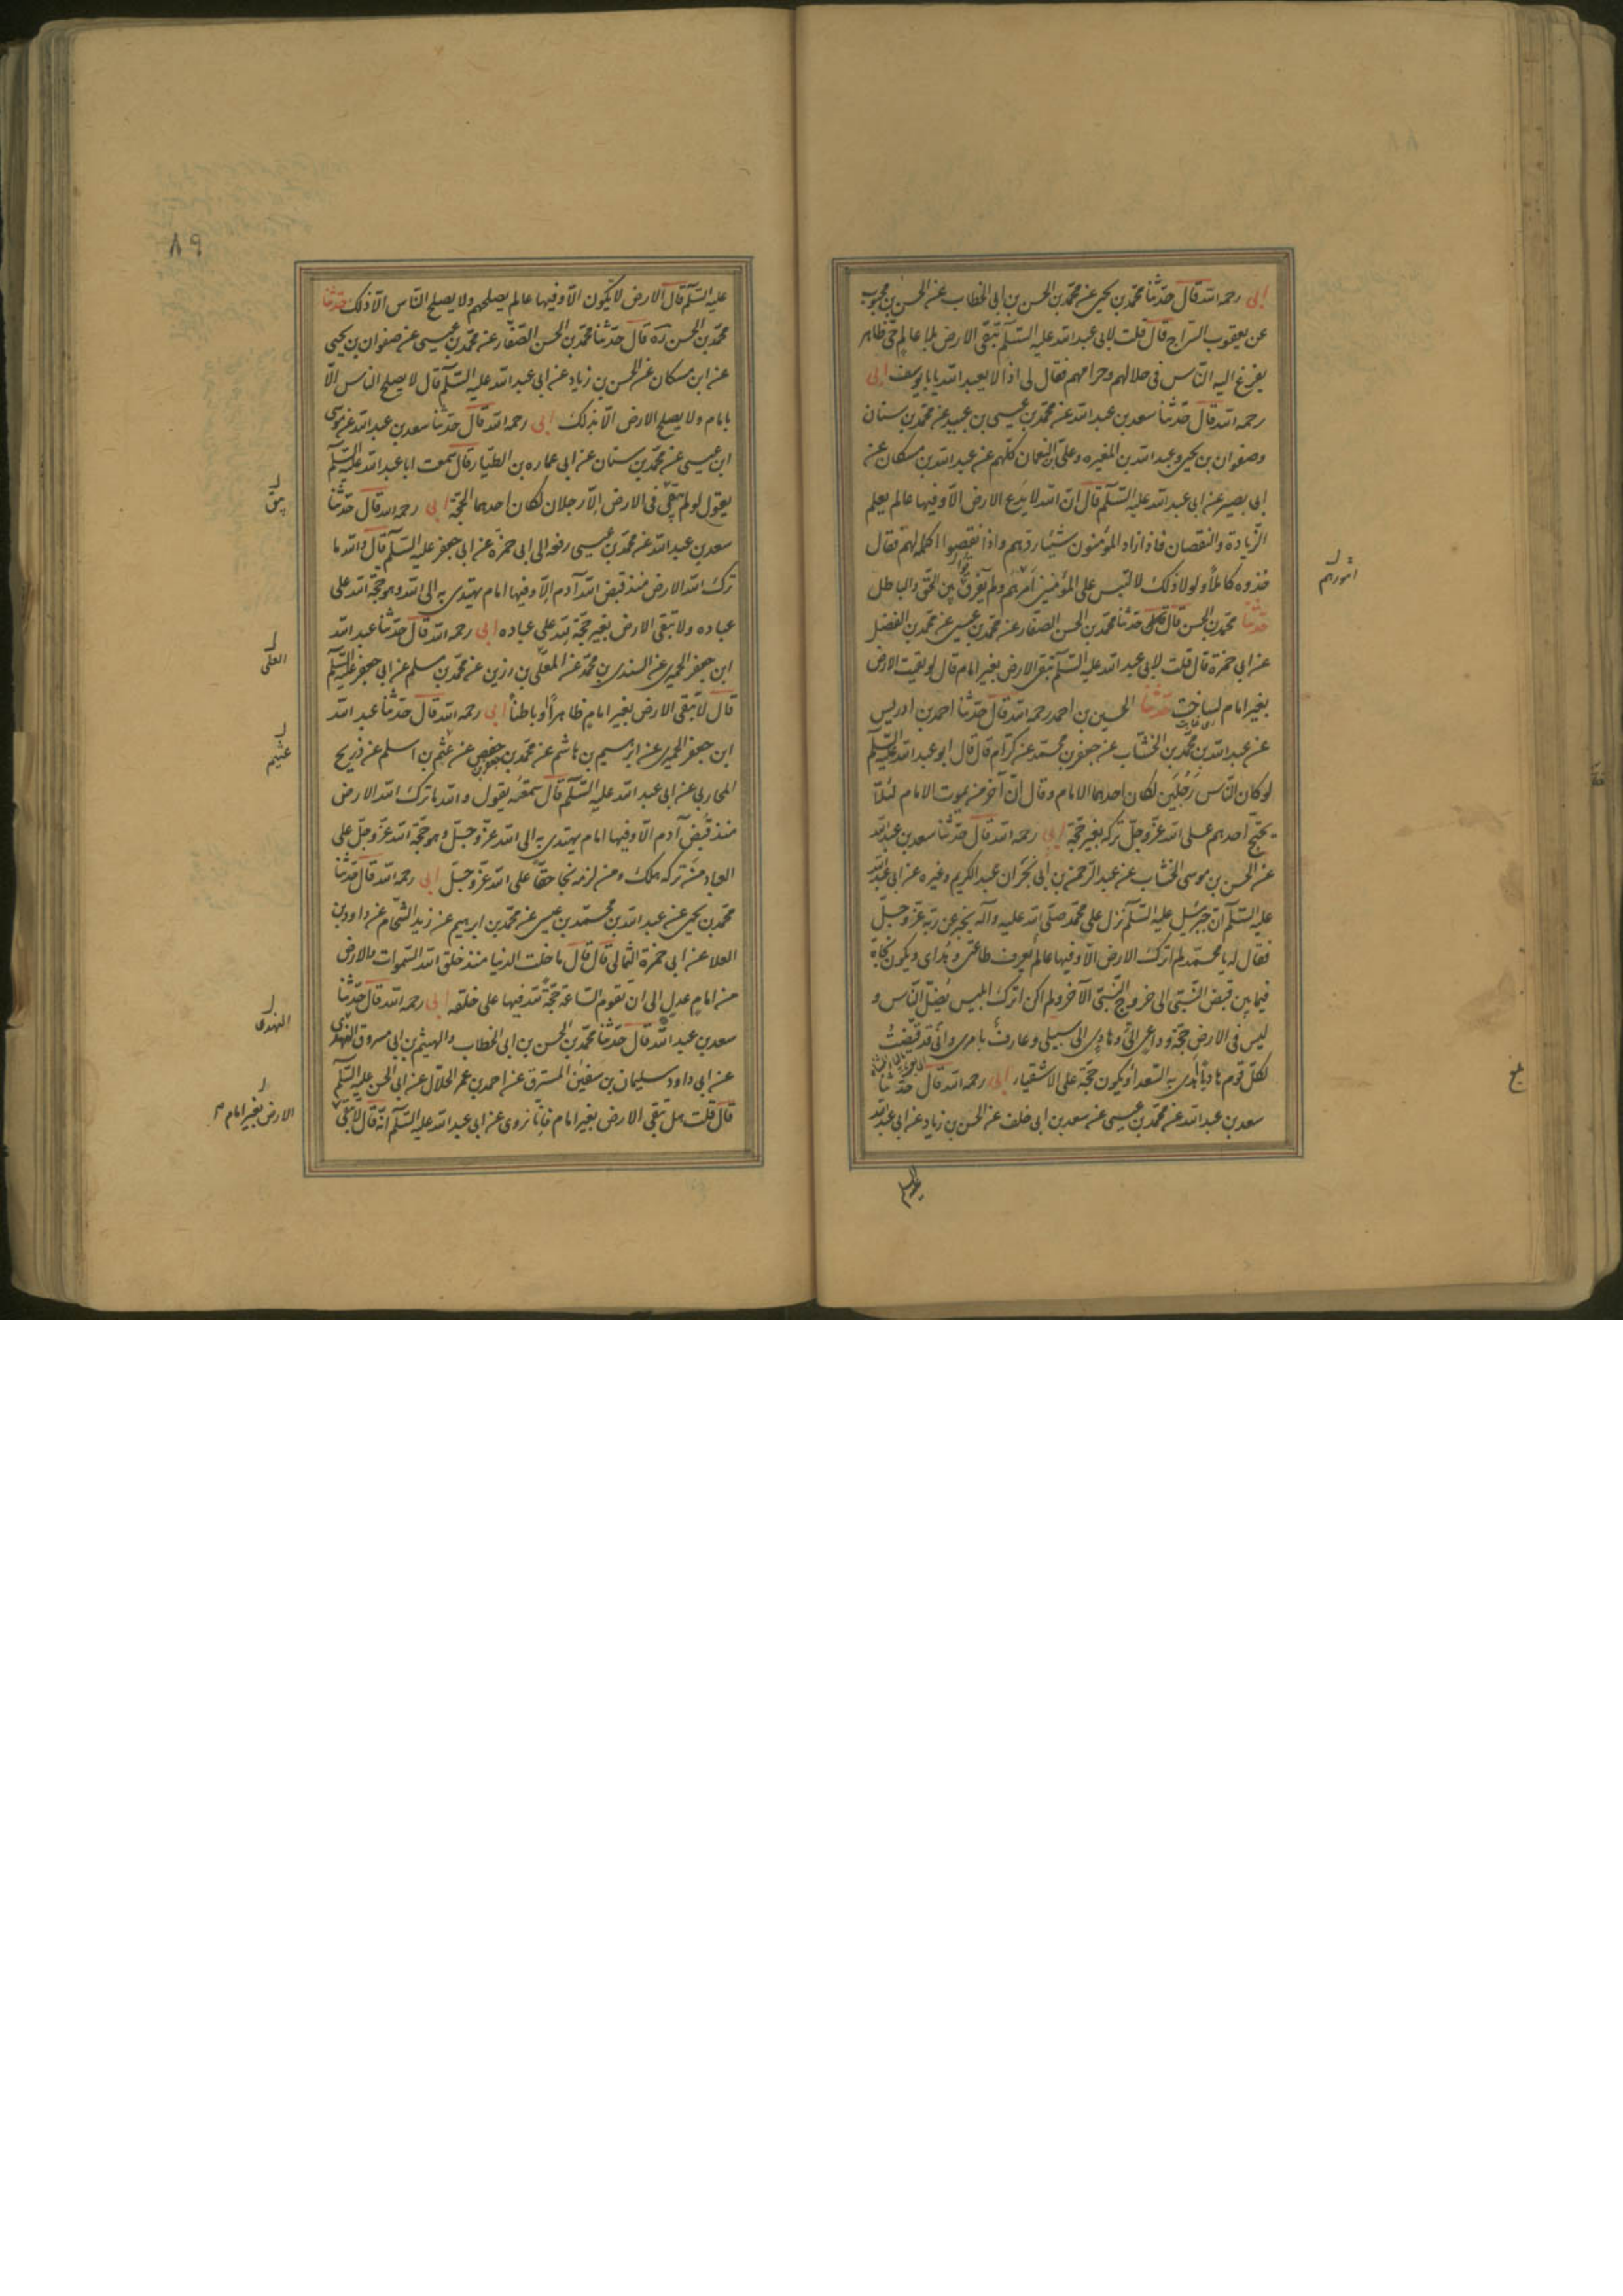 ابى رحمه الله قال حدّثنا محمّد بن يحيى عن محمّد بن الحسن بن ابى الخطاب عن الحسن بن محبوب
عن يعقوب السّراج قال قلت لابى عبد الله عليه السّلم تبقى الارض بلا عالم حىّ ظاهر
يفزغ اليه النّاس فى حلالهم وحرامهم فقال لى اذا لا يعبد الله يا بايوسف ابى
رحمه الله قال حدّثنا سعد بن عبد الله عن محمّد بن عيسى بن عبيد عن محمّد بن سنان
وصفوان بن يحيى وعبد الله بن المغيره وعلى بن النعمان كلّهم عن عبد الله بن مسكان عن
ابى بصير عن ابى عبد الله عليه السّلم قال انّ الله لا يدع الارض الّا وفيها عالم يعلم
الزّيادة والنقصان فاذا زاد المؤمنون شيئا ردّهم واذا نقصوا اكمله لهم فقال
خذوه كاملًا ولولا ذلك لالتبس على المؤمنين امرهم ولم يفرق بين الحقّ والباطل
امورهم
حدّثنا محمّد بن الحسن قال حدّثنا محمّد بن الحسن الصّفار عن محمّد بن عيسى عن محمّد بن الفضل
عن ابى حمزة قال قلت لابى عبد الله عليه السّلم تبقى الارض بغير امام قال لو بقيت الارض
بغير امام لساخت حدّثنا الحسين بن احمد رحمه الله قال حدّثنا احمد بن ادريس
عن عبد الله بن محمّد بن الخشّاب عن جعفر بن محمّد عن كرّام قال قال ابو عبد الله عليه السّلم
لو كان النّاس رجلين لكان احدهما الامام وقال انّ آخر من يموت الامام لئلّا
يحتجّ احدهم على الله عزّ وجلّ تركه بغير حجّة ابى رحمه الله قال حدّثنا سعد بن عبد الله
عن الحسن بن موسى الخشاب عن عبد الرّحمن بن ابى نجران عبد الكريم وغيره عن ابى عبد الله
عليه السّلم انّ جبرئيل عليه السّلم نزل على محمّد صلّى الله عليه وآله يخبر عن ربّه عزّ وجلّ
فقال له يا محمّد لم اترك الارض الّا وفيها عالم يعرف طاعتى وهداى ويكون نجاة
فيما بين قبض النّبىّ الى خروج النّبىّ الآخر ولم اكن اترك ابليس يُضلّ النّاس و
ليس فى الارض حجّة وداعى الىّ وهادى الى سبيلى وعارف بامرى وانّى قد قضيت
لكلّ قوم هاديًا اهدى به السّعداء ويكون حجّة على الاشقياء ابى رحمه الله قال حدّثنا
سعد بن عبد الله عن محمّد بن عيسى عن سعد بن ابى خلف عن الحسن بن زياد عن ابى عبد الله
عليه السلم
٨٩
عليه السّلم قال الارض لا يكون الّا وفيها عالم يصلحهم ولا يصلح النّاس الّا ذلك حدّثنا
محمّد بن الحسن ره قال حدّثنا محمّد بن الحسن الصّفّار عن محمّد بن عيسى عن صفوان بن يحيى
عن ابن مسكان عن الحسن بن زياد عن ابى عبد الله عليه السّلم قال لا يصلح الناس الّا
بامام ولا يصلح الارض الّا بذلك ابى رحمه الله قال حدّثنا سعد بن عبد الله عن موسى
ابن عيسى عن محمّد بن سنان عن ابى عماره بن الطيّار قال سمعت ابا عبد الله عليه السّلم
يقول لو لم يبقى فى الارض الّا رجلان لكان احدهما الحجّة ابى رحمه الله قال حدّثنا
يبق
سعد بن عبد الله عن محمّد بن عيسى رفعه الى ابى حمزة عن ابى جعفر عليه السّلم قال والله ما
ترك الله الارض منذ قبض الله آدم الّا وفيها امام يهتدى به الى الله وهو حجّة الله على
عباده ولا تبقى الارض بغير حجّة لله على عباده ابى رحمه الله قال حدّثنا عبد الله
ابن جعفر الحميرى عن السندى بن محمّد عن المعلّى بن رزين عن محمّد بن مسلم عن ابى جعفر عليه السّلم
العلى
قال لا تبقى الارض بغير امام ظاهرًا أو باطنًا ابى رحمه الله قال حدّثنا عبد الله
ابن جعفر الحميرى عن ابرهيم بن هاشم عن محمّد بن حفص عن عثم بن اسلم عن ذريح
عثيم
المحاربى عن ابى عبد الله عليه السّلم قال سمعته يقول والله ما ترك الله الارض
منذ قبض آدم الّا وفيها امام يهتدى به الى الله عزّ وجلّ وهو حجّة الله عزّ وجلّ على
العباد من تركه هلك ومن لزمه نجا حقًّا على الله عزّ وجلّ ابى رحمه الله قال حدّثنا
محمّد بن يحيى عن عبد الله بن محمّد بن عيسى عن محمّد بن ابرهيم عن زيد الشّحام عن داود بن
العلا عن ابى حمزة الثمالى قال قال ما خلت الدنيا منذ خلق الله السّموات والارض
من امام عدل الى ان تقوم السّاعة حجّة لله فيها على خلقه ابى رحمه الله قال حدّثنا
سعد بن عبد الله قال حدّثنا محمّد بن الحسن بن ابى الخطاب والهيثم بن ابى مسروق النهدى
النهدى
عن ابى داود سليمان بن سفين المسترق عن احمد بن عمر الحلّال عن ابى الحسن عليه السّلم
قال قلت هل تبقى الارض بغير امام فانّا نروى عن ابى عبد الله عليه السّلم انّه قال لا تبقى
الارض بغير امام